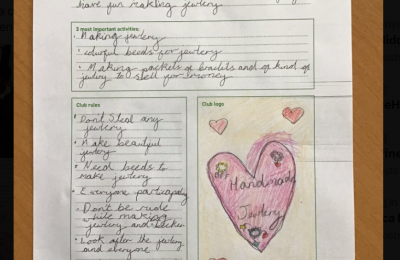 have fun making jewlery
3 most important activities
• Making jewlery
• colurful beeds for jewlery
• Making packets of braclets and of kind of
jewlery to stell for money
Club rules
• Don't Steal any
jewlery
• Make beautiful
jewlery
• Need beeds to
make jewlery
• Everyone participating
• Don't be rude
while making
jewlery and
• Look after the jewlery
and everyone
Club logo
Handmade
Jewlery